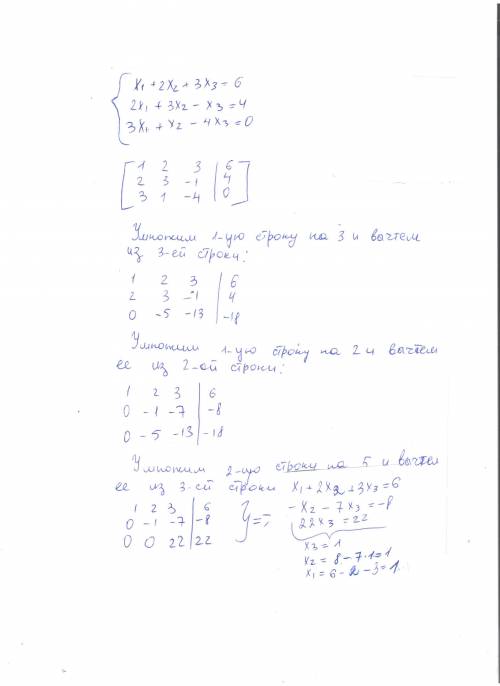 x₁ + 2x₂ + 3x₃ = 6
2x₁ + 3x₂ - x₃ = 4
3x₁ + x₂ - 4x₃ = 0
1 2 3 | 6
2 3 -1 | 4
3 1 -4 | 0
Умножим 1-ую строку на 3 и вычтем
из 3-ей строки:
1 2 3 | 6
2 3 -1 | 4
0 -5 -13 | -18
Умножим 1-ую строку на 2 и вычтем
ее из 2-ой строки:
1 2 3 | 6
0 -1 -7 | -8
0 -5 -13 | -18
Умножим 2-ую строку на 5 и вычтем
ее из 3-ей строки
1 2 3 | 6
0 -1 -7 | -8
0 0 22 | 22
x₁ + 2x₂ + 3x₃ = 6
-x₂ - 7x₃ = -8
22x₃ = 22
x₃ = 1
x₂ = 8 - 7·1 = 1
x₁ = 6 - 2 - 3 = 1.